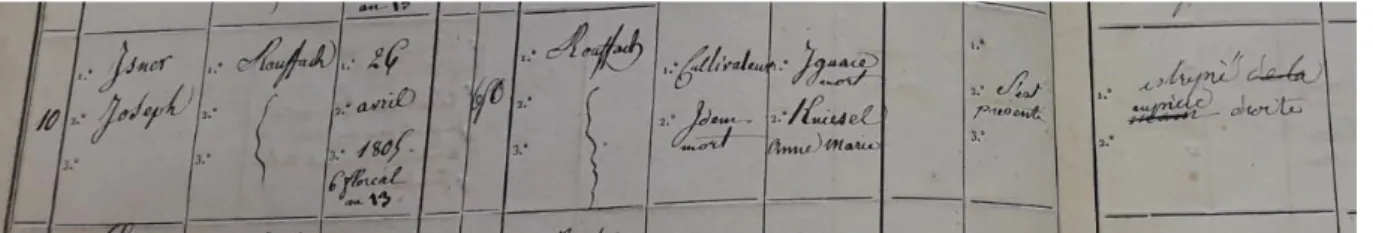 an 13
10
1.° Isner
2.° Joseph
3.°
1.° Rouffach
2.°
3.°
1.° 26
2.° avril
3.° 1805.
6 floreal
an 13.
1.° Rouffach
2.°
3.°
1.° Cultivateur
2.° Idem
mort
1.° Ignace
mort
2.° Kniesel
Anne Marie
1.°
2.° S'est
présenté
3.°
1.° estropié de la
main droite
2.°